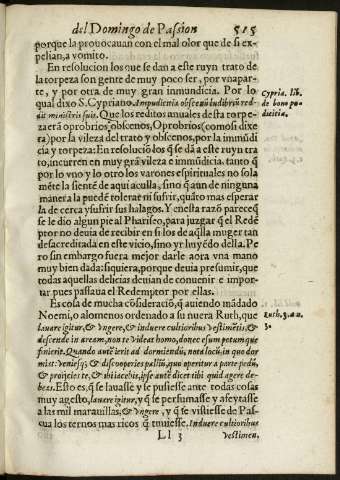 del Domingo de Passion 515
porque la prouocauan con el mal olor que de si ex-
pelian, a vomito.
En resolucion los que se dan a este ruyn trato de
la torpeza son gente de muy poco ser, por vna par-
te, y por otra de muy gran inmundicia. Por lo
qual dixo S. Cypriano. Impudicitia obscenũ ludibriũ red-
dit ministris suis. Que los reditos anuales desta torpe-
za erã oprobrios obscenos, Oprobrios (como si dixe
ra) por la vileza del trato y obscenos, por la inmũdi
cia y torpeza: En resoluciõ los q̃ se dã a este ruyn tra
to, incurren en muy grã vileza e inmũdicia. tanto q̃
por lo vno y lo otro los varones espirituales no sola
mẽte la siente de aqui aculla, sino q̃ aun de ninguna
manera la puedẽ tolerar ni sufrir, quãto mas esperar
la de cerca y sufrir sus halagos. Y en esta razõ parece q̃
se le dio algun pie al Phariseo, para juzgar q̃ el Redẽ
ptor no deuia de recibir en si los de aq̃lla muger tan
desacreditada en este vicio, sino yr huyẽdo della. Pe
ro sin embargo fuera mejor darle aora vna mano
muy bien dada: siquiera, porque deuia presumir, que
todas aquellas delicias deuian de conuenir e impor-
tar pues passaua el Redemptor por ellas.
Es cosa de mucha cõsideraciõ, q̃ auiendo mãdado
Noemi, o alomenos ordenado a su nuera Ruth, que
lauare igitur, & Vngere, & induere cultioribus Vestimẽtis, &
descende in aream, non te Videat homo, donec esum potum que
finierit. Quando autẽ ierit ad dormiendũ, nota locũ, in quo dor
miat: Veniesq; & discooperies palliũ, quo operitur a parte pedũ,
& proijcies te, & ibi iacebis, ipse autẽ dicet tibi quid agere de-
beas. Esto es, q̃ se lauasse y se pusiesse ante todas cosas
muy agesto, lauare igitur, y q̃ se perfumasse y afeytasse
a las mil marauillas, & Vngere, y q̃ se vistiesse de Pas-
cua los ternos mas ricos q̃ tuuiesse. Induere cultioribus
Ll 3 Vestimen,
Cypria. lib.
de bono pu-
dicitiæ.
Ruth. 3. a n.
3.